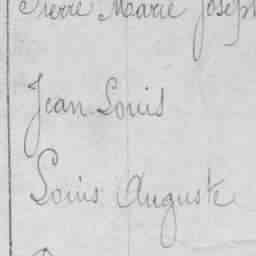 Pierre Marie Joseph
Jean Louis
Louis Auguste